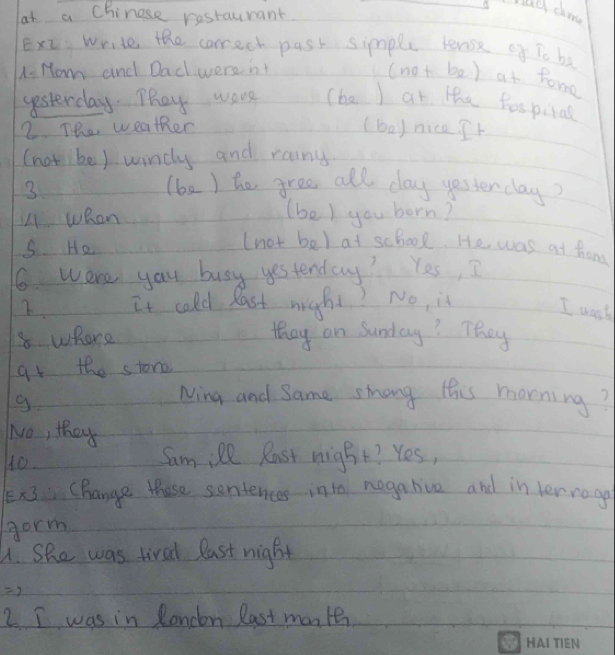 at a Chinese restaurant.
Ex2: Write the correct past simple tense of To be
1. Mom and Dad weren't (not be) at home
yesterday. They were (be) at the hospital
2. The weather (be) nice It
(not be) windy and rainy.
3. (be) he free all day yesterday?
4. When (be) you born?
5. He (not be) at school. He was at home
6 Were you busy yesterday? Yes, I
7. It cold last night? No, it
8 where they on Sunday? They
at the store
9 Nina and Same strong this morning?
No, they
10. Sam ill last night? Yes,
Ex3: Change these sentences into negative and interroga
form
1. She was tired last night
=>
2 I was in london last month
HAI TIEN